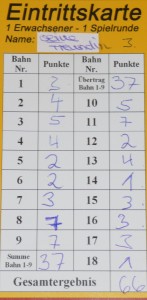 Eintrittskarte
1 Erwachsener - 1 Spielrunde
Name: 3.
Bahn Nr. Punkte Bahn Nr. Punkte
1 3 Übertrag Bahn 1-9 37
2 4 10 5
3 5 11 7
4 4 12 2
5 2 13 4
6 2 14 1
7 3 15 3
8 7 16 3
9 7 17 3
Summe Bahn 1-9 37 18 1
Gesamtergebnis 66